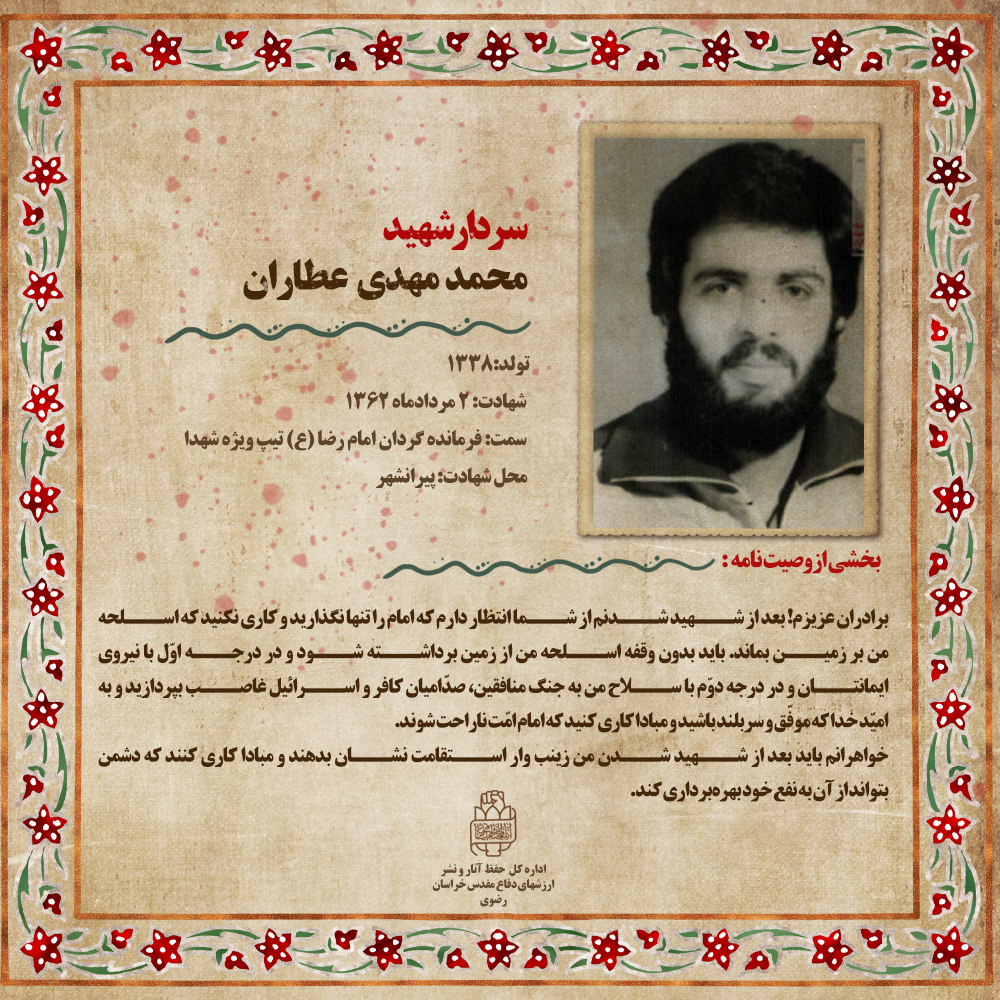 سردار شهید
محمد مهدی عطاران
تولد: ۱۳۳۸
شهادت: ۲ مردادماه ۱۳۶۲
سمت: فرمانده گردان امام رضا (ع) تیپ ویژه شهدا
محل شهادت: پیرانشهر
بخشی از وصیت‌نامه :
برادران عزیزم! بعد از شهید شدنم از شما انتظار دارم که امام را تنها نگذارید و کاری نکنید که اسلحه
من بر زمین بماند. باید بدون وقفه اسلحه من از زمین برداشته شود و در درجه اوّل با نیروی
ایمانتان و در درجه دوّم با سلاح من به جنگ منافقین، صدّامیان کافر و اسرائیل غاصب بپردازید و به
امیّد خدا که موفّق و سربلند باشید و مبادا کاری کنید که امام امّت ناراحت شوند.
خواهرانم باید بعد از شهید شدن من زینب وار استقامت نشان بدهند و مبادا کاری کنند که دشمن
بتواند از آن به نفع خود بهره‌برداری کند.
اداره کل حفظ آثار و نشر
ارزشهای دفاع مقدس خراسان
رضوی